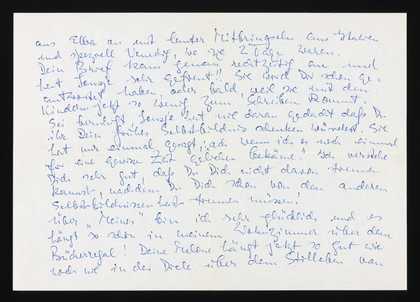 aus Elba an mit lauter Mitbringseln aus Italien
und speziell Venedig, wo sie 2 Tage waren.
Dein Brief kam genau rechtzeitig an und
hat sehr gefreut!! Sie wird Dir schon ge-
antwortet haben oder bald, weil sie mit den
Kindern jetzt so wenig zum Schreiben kommt.
Sei hast wie daran gedacht daß Du
ihr Dein frühes Selbstbildnis schenken würdest. Sie
hat mir einmal gesagt, ach wenn ich es noch einmal
für eine gewisse Zeit geliehen bekäme! Ich verstehe
Dich sehr gut, daß Du Dich nicht davon trennen
kannst, nachdem Du Dich schon von dem anderen
Selbstbildnis hast trennen müssen!
Über "Meines" bin ich sehr glücklich und es
hängt so schön in meinem Wohnzimmer über dem
Bücherregal! Deine hängt jetzt so gut wie
noch nie in der Diele über dem Stilleben von